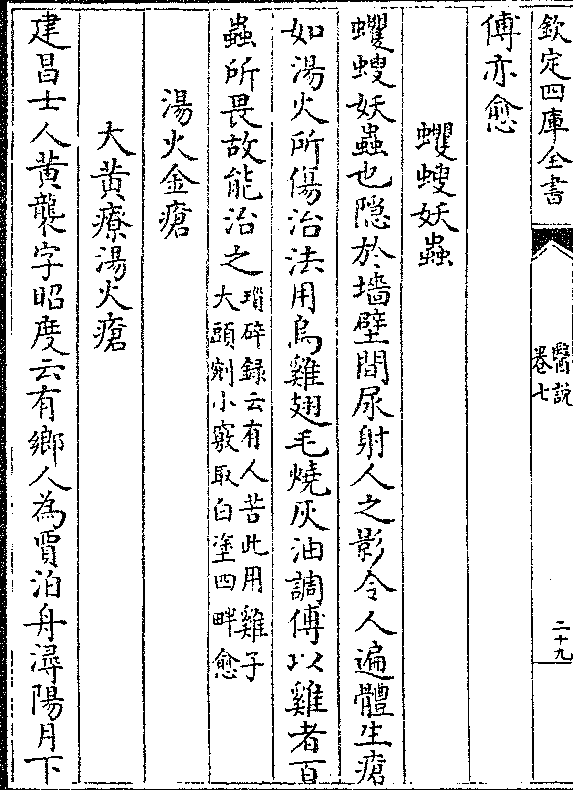 欽定四庫全書
醫說
卷七
二十九
傅亦愈
蠷螋妖蟲
蠷螋妖蟲也隠於墻壁間尿射人之影令人遍體生瘡
如湯火所傷治法用烏雞翅毛燒灰油調傅以雞者百
蟲所畏故能治之
瑣碎録云有人苦此用雞子
大頭剜小竅取白塗四畔愈
湯火金瘡
大黄療湯火瘡
建昌士人黄襲字昭度云有鄉人為賈泊舟潯陽月下